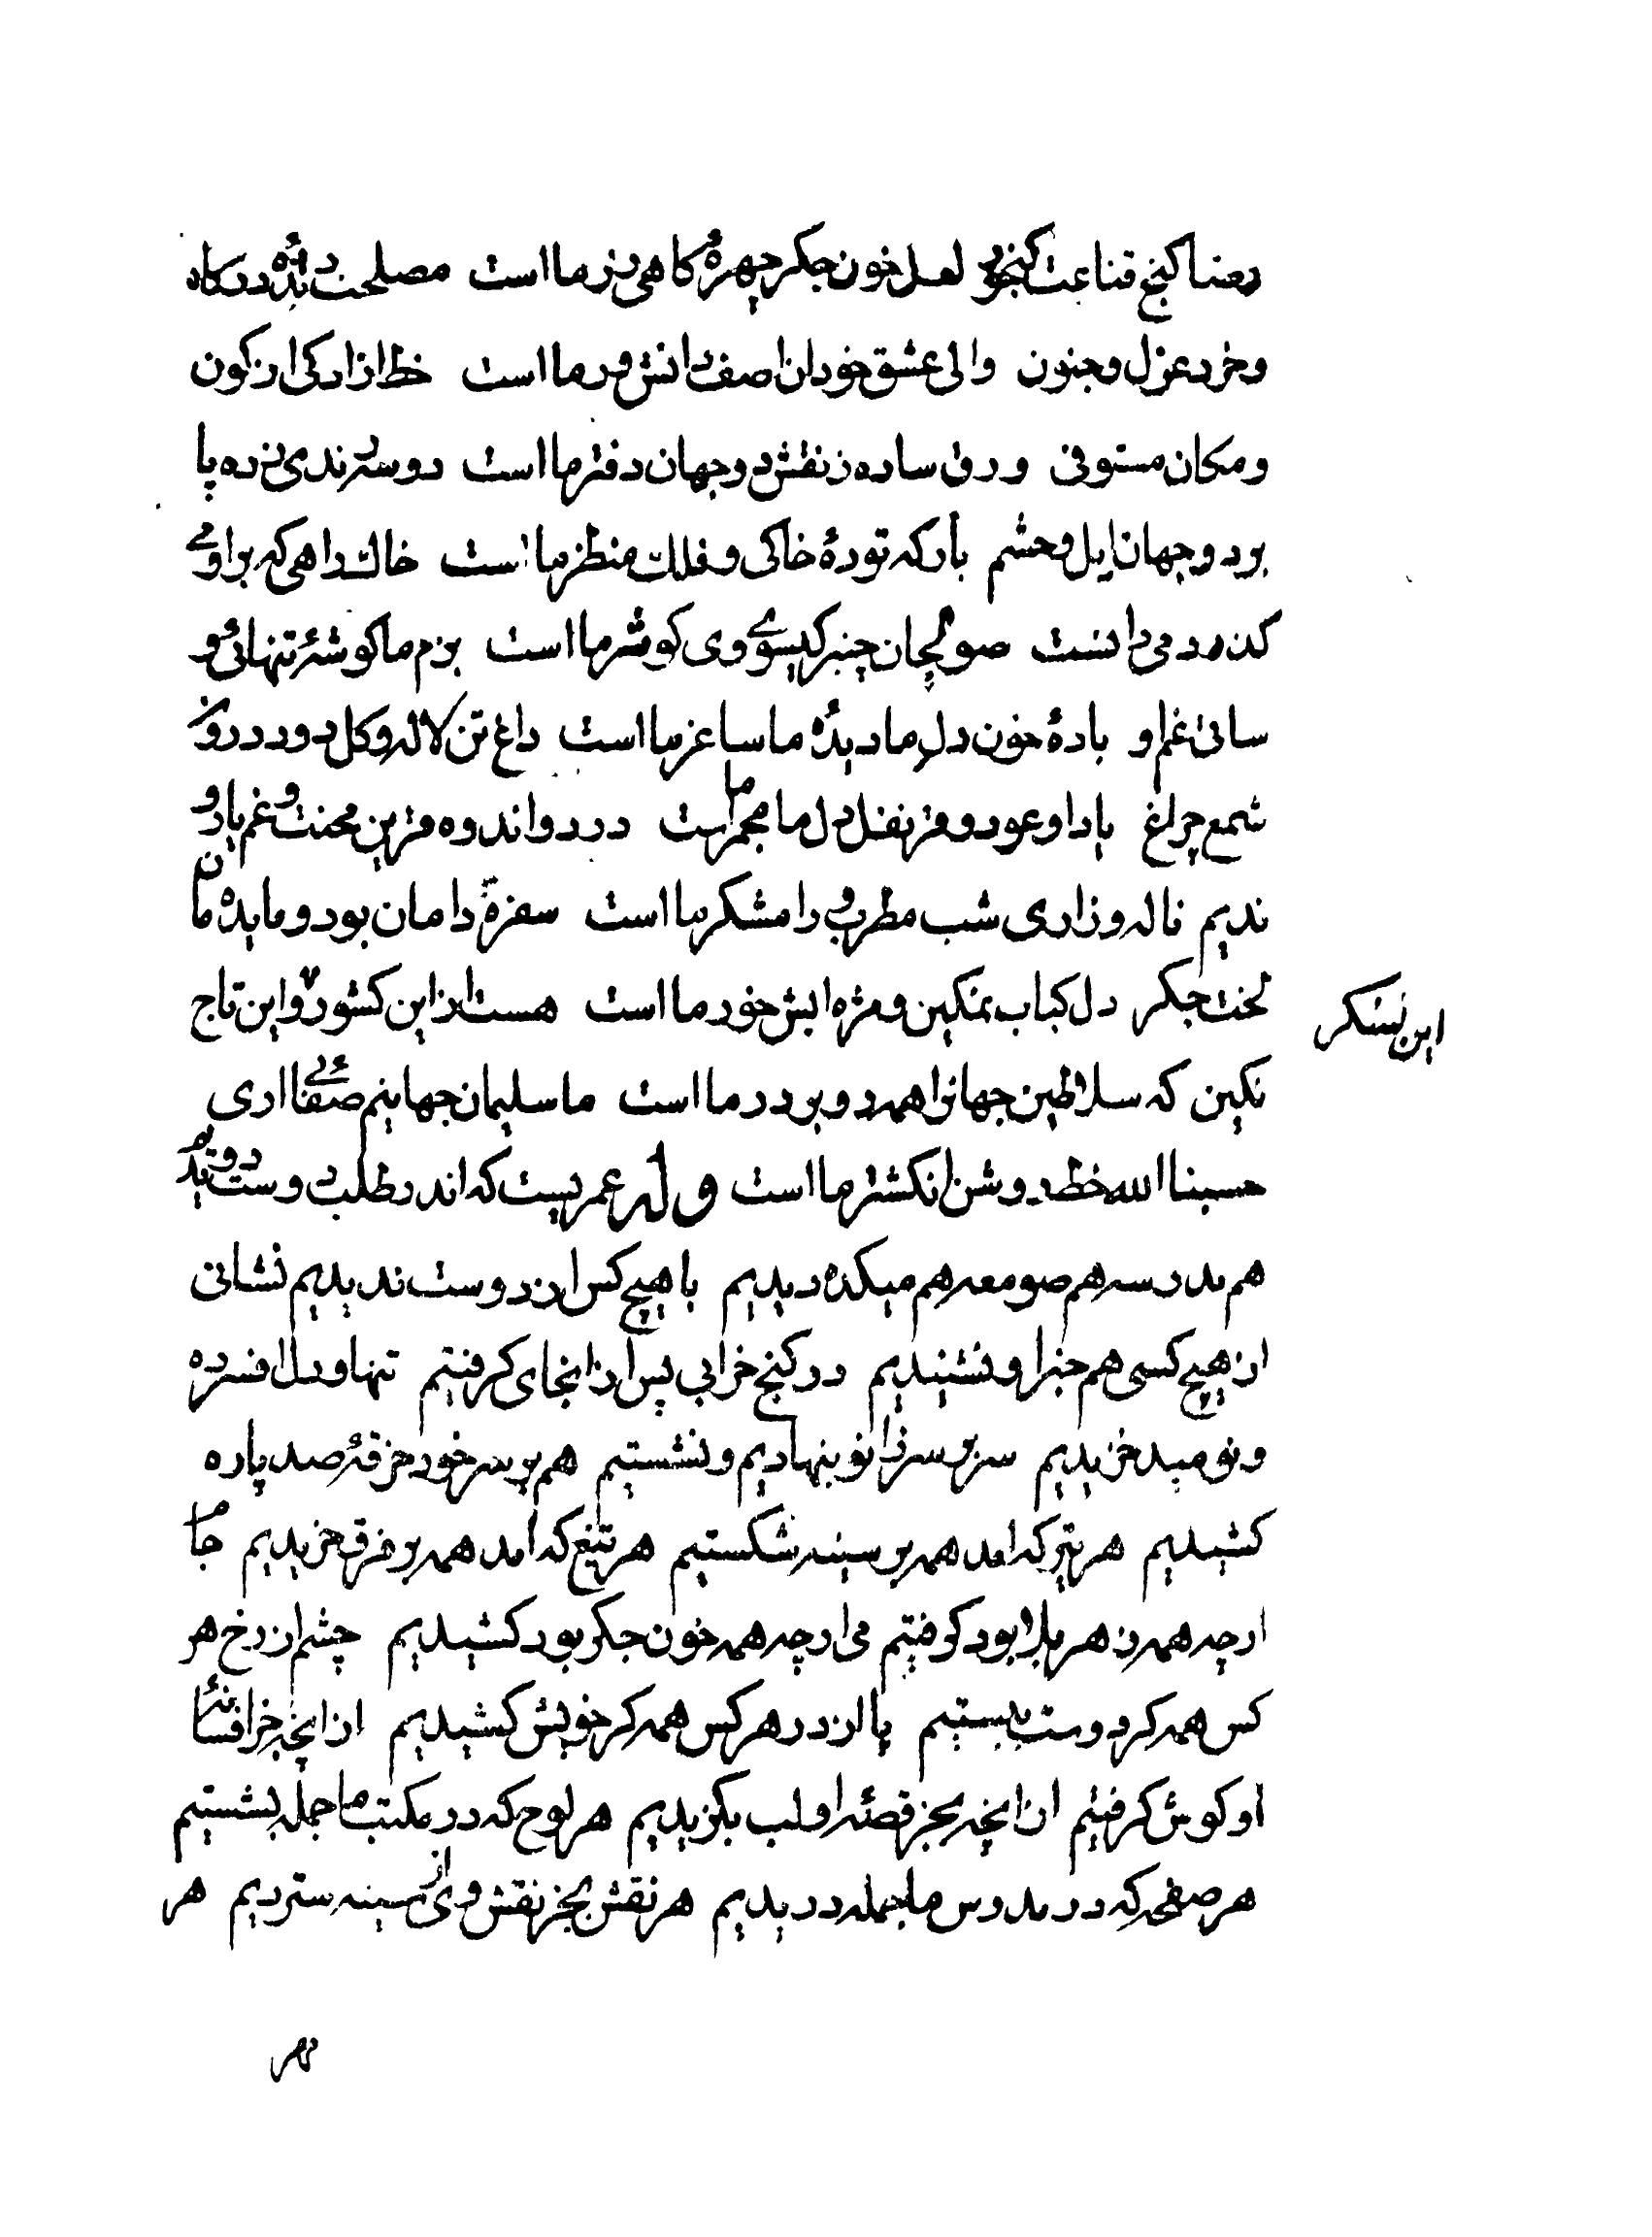 رضا کنج قناعت گنجور لعل خون جکر چهرهٔ کاهی زر ما است مصلحت دیدهٔ درکاه
وخرد عزل وجنون والی عشق خود اصف دانش ور ما است خط ازادکی از کون
و مکان مستوفی ورق ساده ز نقش دو جهان دفتر ما است دوسه رندی زده پا
بر دو جهان ایل وحشم بارکه تودهٔ خاکی و فلک منظر ما است خاک راهی که براو می
کذرد می دانست صولجان چنبر کیسوی وی کو سر ما است بزم ما کوشهٔ تنهائی و
ساقی غم او بادهٔ خون دل ما دیدهٔ ما ساغر ما است داغ تن لاله و کل دود درون
شمع چراغ یاد او عود و قرنفل دل ما مجمر ما است درد و اندوه قرین محنت و غم یار و
ندیم ناله و زاری شب مطرب و رامشکر ما است سفره دامان بود و مایده مان
لخت جکر دل کباب نمکین و مژه ابش خور ما است هست از این کشور و این تاج
این لشکر
نکین که سلاطین جهانرا همه رو بر در ما است ما سلیمان جهانیم صفائی اری
حسبنا الله خط روشن انکشتر ما است وله عمریست که اندر طلب دوست دویدیم
هم مدرسه هم صومعه هم میکده دیدیم با هیچ کس از دوست ندیدیم نشانی
از هیچ کسی هم خبر او نشنیدیم در کنج خرابی پس از انجای کرفتیم تنها و دل افسرده
و نومید خزیدیم سر بر سر زانو بنهادیم و نشستیم هم بر سر خود خرقهٔ صد پاره
کشیدیم هر تیر که امد همه بر سینه شکستیم هر تیغ که امد همه بر فرق خریدیم جام
ارچه همه زهر بلا بود کرفتیم می ارچه همه خون جکر بود کشیدیم چشم از رخ هر
کس همه کر دوست ببستیم پا از در هر کس همه کر خویش کشیدیم از انچه جز افسانهٔ
او کوش کرفتیم از انچه بجز قصهٔ او لب بکزیدیم هر لوح که در مکتب ما جمله بشستیم
هر صفحه که در مدرس ما جمله دریدیم هر نقش بجز نقش وی از سینه ستردیم هر
مهر